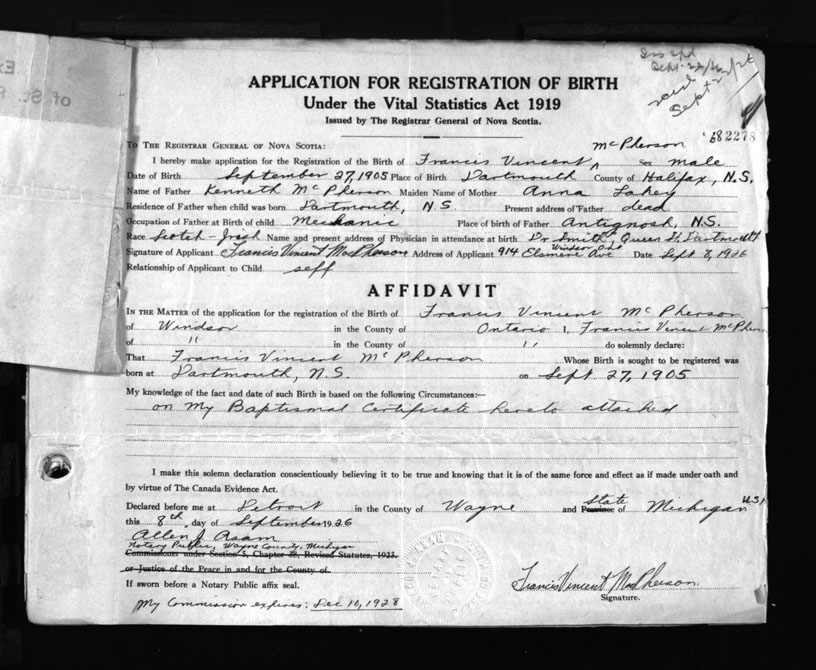 Sept
Sept
APPLICATION FOR REGISTRATION OF BIRTH
Under the Vital Statistics Act 1919
Issued by The Registrar General of Nova Scotia.
of St.
682278
TO THE REGISTRAR GENERAL OF NOVA SCOTIA: McPherson
I hereby make application for the Registration of the Birth of Francis Vincent ^ Sex male
Date of Birth September 27, 1905 Place of Birth Dartmouth County of Halifax, N.S.
Name of Father Kenneth McPherson Maiden Name of Mother Anna Lahey
Residence of Father when child was born Dartmouth, N.S. Present address of Father dead
Occupation of Father at Birth of child Mechanic Place of birth of Father Antignosh, N.S.
Race Scotch-Irish Name and present address of Physician in attendance at birth Dr Smith Queen St, Dartmouth
Signature of Applicant Francis Vincent MacPherson Address of Applicant 914 Elsmere Ave Windsor Ont. Date Sept 8, 1926
Relationship of Applicant to Child self
AFFIDAVIT
IN THE MATTER of the application for the registration of the Birth of Francis Vincent McPherson
of Windsor in the County of Ontario I, Francis Vincent McPherson
of " in the County of " do solemnly declare:
That Francis Vincent McPherson Whose Birth is sought to be registered was
born at Dartmouth, N.S. on Sept. 27, 1905
My knowledge of the fact and date of such Birth is based on the following Circumstances:—
on my Baptismal Certificate hereto attached
I make this solemn declaration conscientiously believing it to be true and knowing that it is of the same force and effect as if made under oath and
by virtue of The Canada Evidence Act.
Declared before me at Detroit in the County of Wayne and Province State of Michigan U.S.
this 8th day of September 1926
Allen J. Asam
Notary Public, Wayne County, Michigan
Commissioner under Section 5, Chapter 38, Revised Statutes, 1923.
or Justice of the Peace in and for the County of
If sworn before a Notary Public affix seal.
My Commission expires: Dec 10, 1928
Francis Vincent MacPherson
Signature.